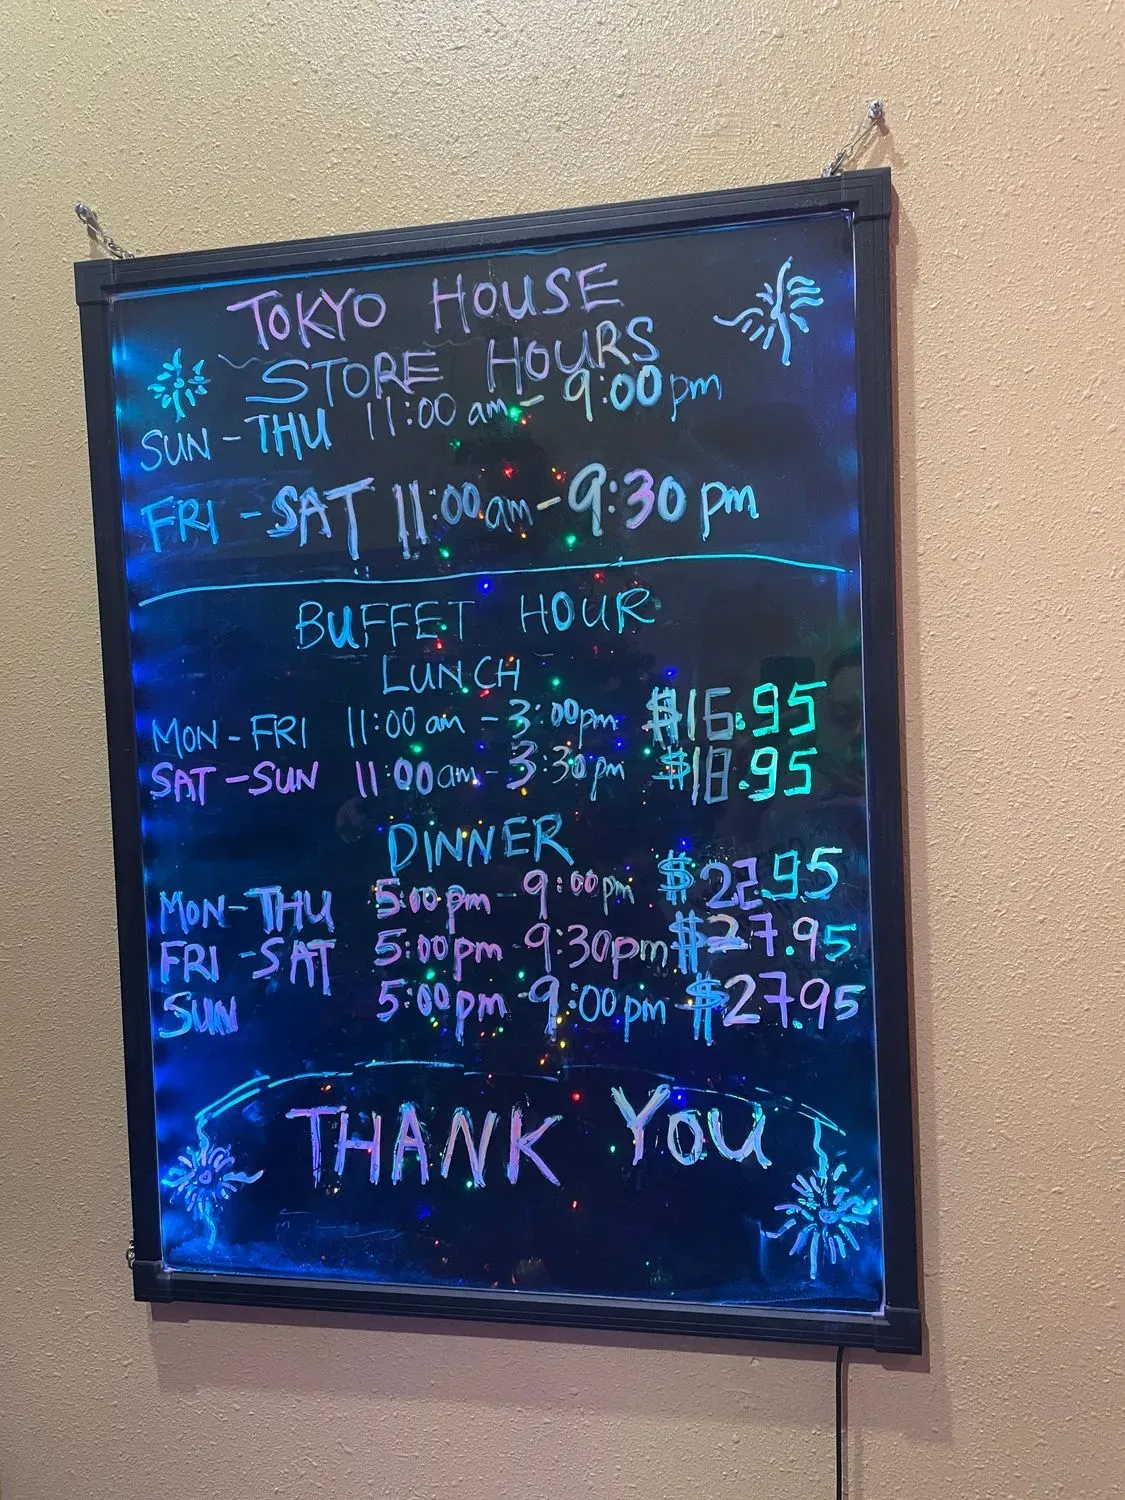 TOKYO HOUSE
STORE HOURS
SUN - THU 11:00 am - 9:00 pm
FRI - SAT 11:00 am - 9:30 pm
BUFFET HOUR
LUNCH
MON - FRI 11:00 am - 3:00pm $16.95
SAT - SUN 11:00am - 3:30pm $18.95
DINNER
MON - THU 5:00pm - 9:00pm $22.95
FRI - SAT 5:00pm - 9:30pm $27.95
SUN 5:00pm - 9:00pm $27.95
THANK YOU